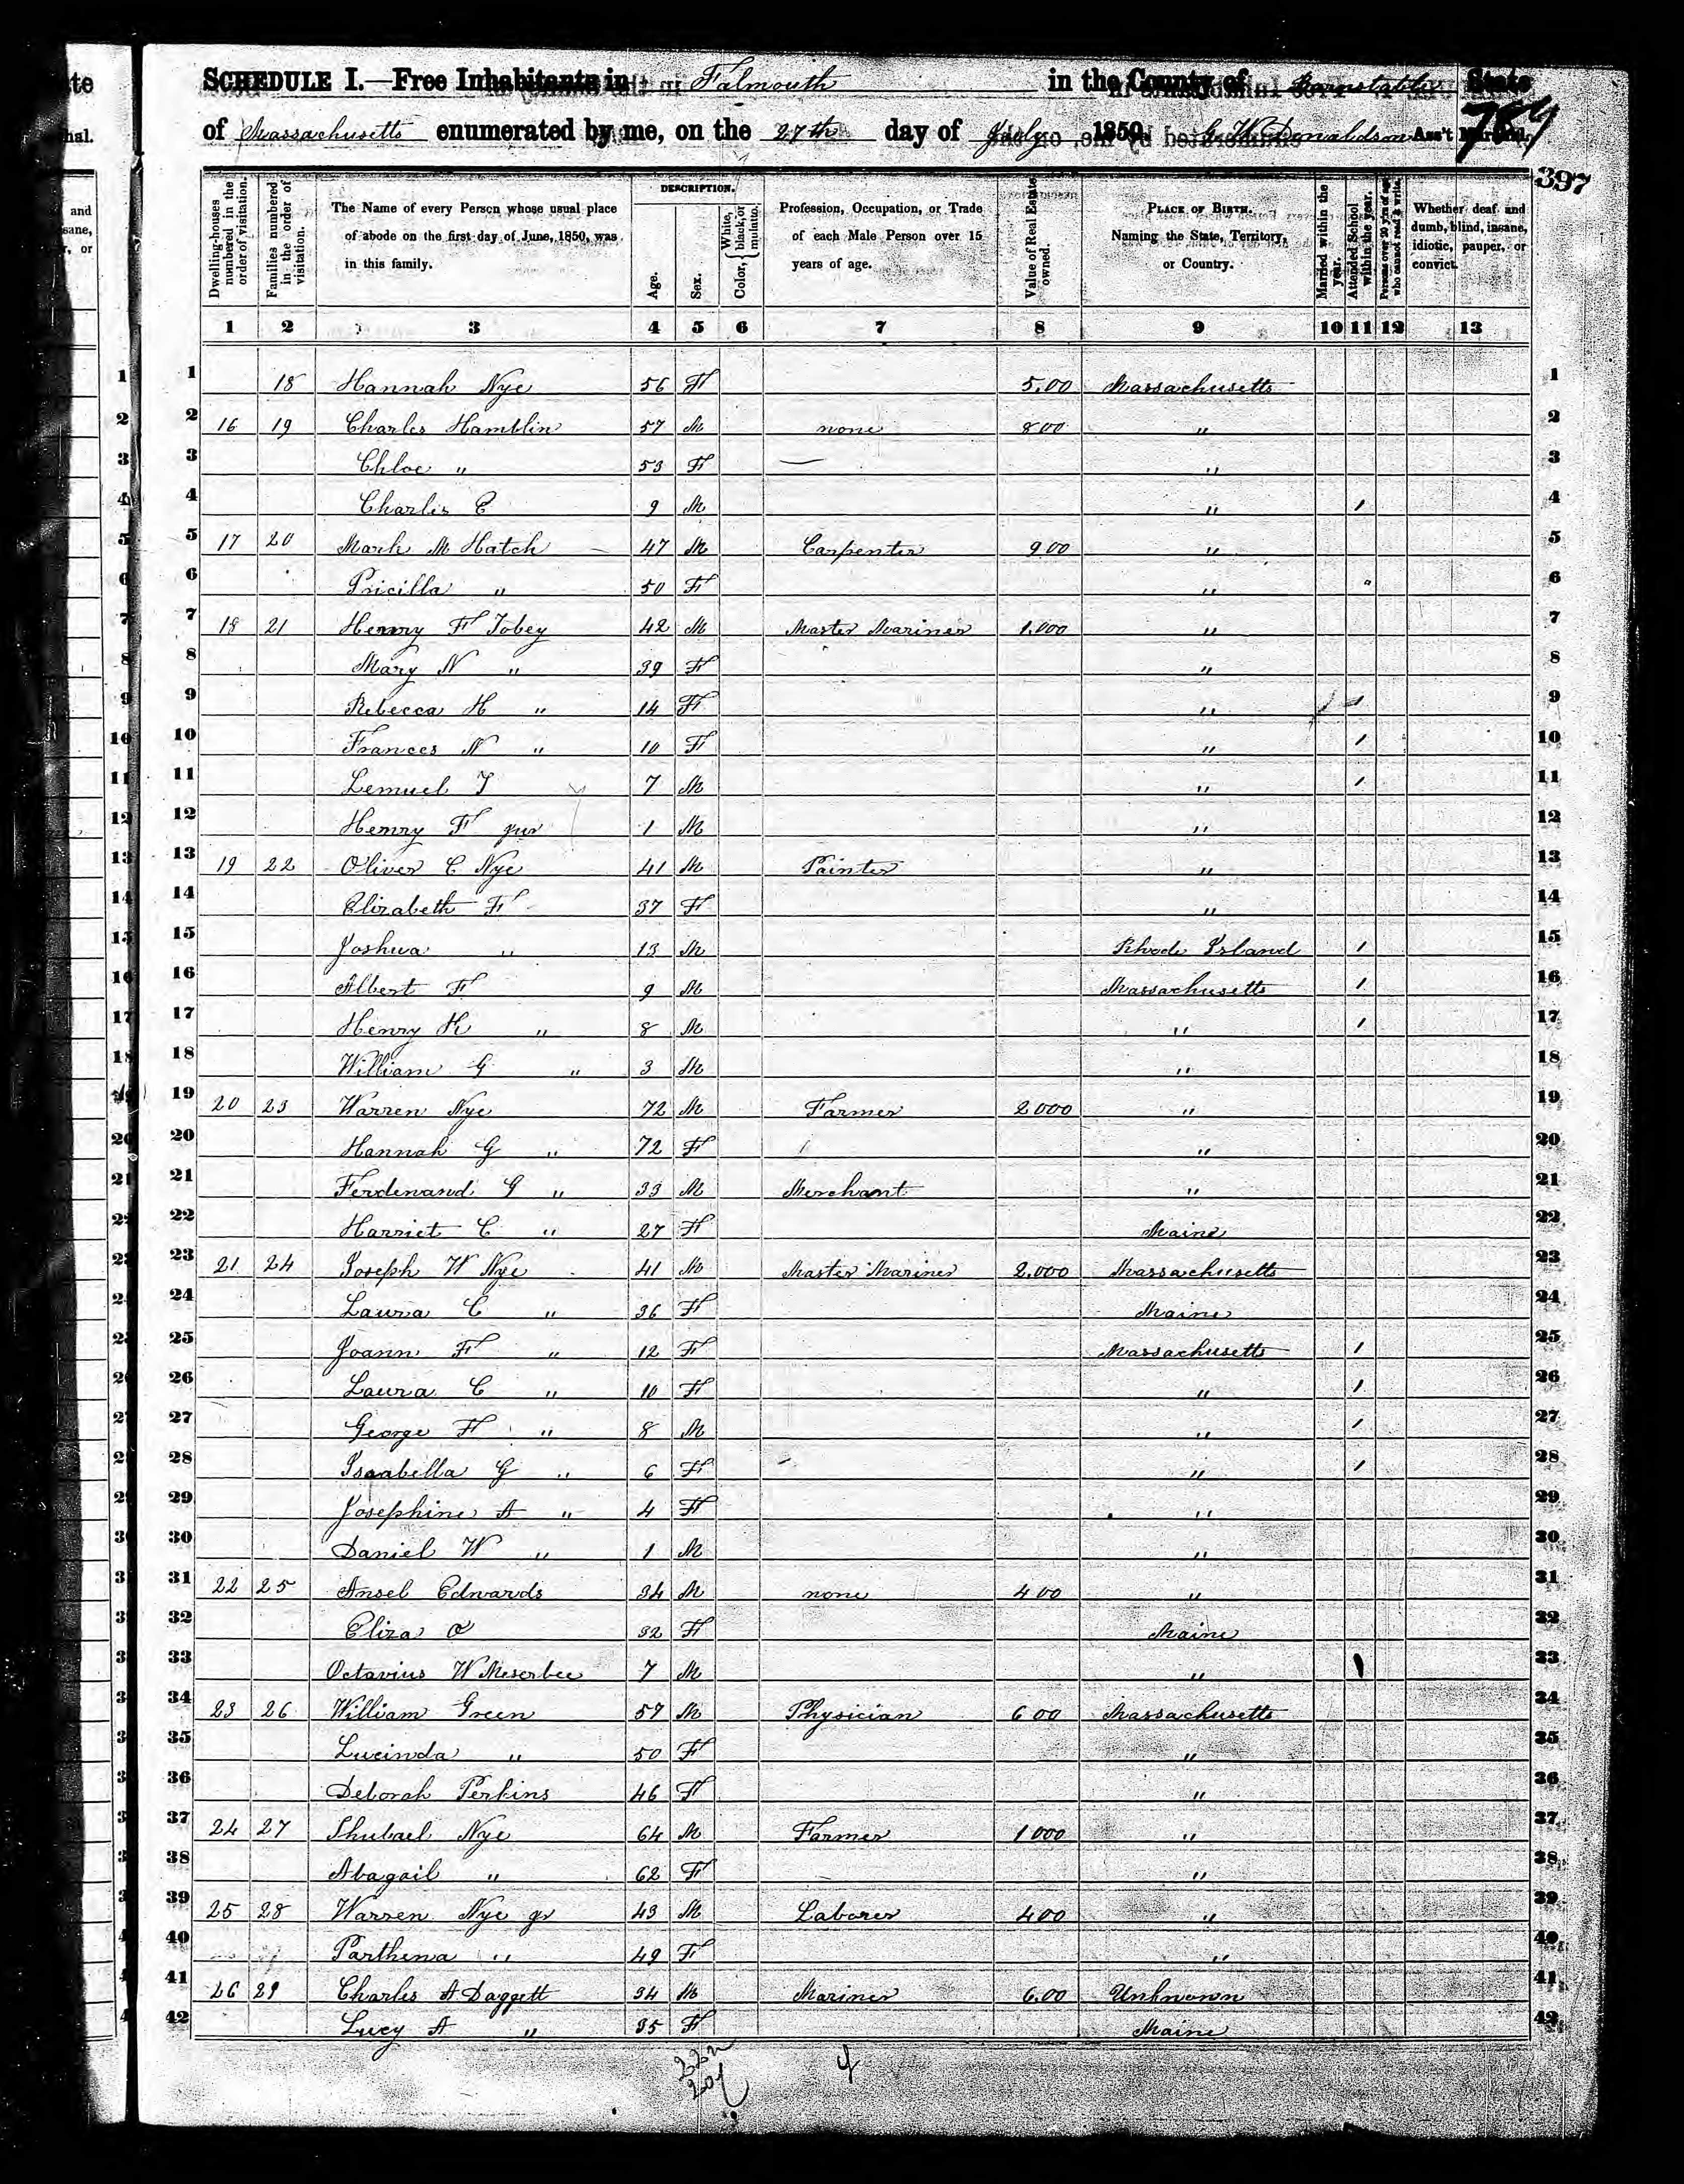 SCHEDULE I.—Free Inhabitants in Falmouth in the County of Barnstable State
of Massachusetts enumerated by me, on the 27th day of July 1850. G. W. Donaldson Ass't Marshal.
789
397
Dwelling-houses numbered in the order of visitation.
Families numbered in the order of visitation.
The Name of every Person whose usual place of abode on the first day of June, 1850, was in this family.
DESCRIPTION.
Age.
Sex.
Color, { White, black, or mulatto.
Profession, Occupation, or Trade of each Male Person over 15 years of age.
Value of Real Estate owned.
PLACE OF BIRTH. Naming the State, Territory, or Country.
Married within the year.
Attended School within the year.
Persons over 20 y'rs of age who cannot read & write.
Whether deaf and dumb, blind, insane, idiotic, pauper, or convict.
1 2 3 4 5 6 7 8 9 10 11 12 13
1 18 Hannah Nye 56 F 5.00 Massachusetts 1
2 16 19 Charles Hamblin 57 M none 800 " 2
3 Chloe " 53 F — " 3
4 Charles C 9 M " / 4
5 17 20 Mark M Hatch 47 M Carpenter 900 " 5
6 Pricilla " 50 F " 6
7 18 21 Henry F Tobey 42 M Master Mariner 1.000 " 7
8 Mary N " 39 F " 8
9 Rebecca H " 14 F " / 9
10 Frances N " 10 F " / 10
11 Lemuel T 7 M " / 11
12 Henry F jur 1 M " 12
13 19 22 Oliver C Nye 41 M Painter " 13
14 Elizabeth F 37 F " 14
15 Joshua " 13 M Rhode Island / 15
16 Albert F 9 M Massachusetts / 16
17 Henry H " 8 M " / 17
18 William G " 3 M " 18
19 20 23 Warren Nye 72 M Farmer 2000 " 19
20 Hannah G " 72 F " 20
21 Ferdenand G " 33 M Merchant " 21
22 Harriet C " 27 F Maine 22
23 21 24 Joseph W Nye 41 M Master Mariner 2.000 Massachusetts 23
24 Laura C " 36 F Maine 24
25 Joann F " 12 F Massachusetts / 25
26 Laura C " 10 F " / 26
27 George F " 8 M " / 27
28 Isaabella G " 6 F " / 28
29 Josephine A " 4 F " 29
30 Daniel W " 1 M " 30
31 22 25 Ansel Edwards 34 M none 400 " 31
32 Eliza O 32 F Maine 32
33 Octavius W 7 M " / 33
34 23 26 William Green 57 M Physician 600 Massachusetts 34
35 Lucinda " 50 F " 35
36 Deborah Perkins 46 F " 36
37 24 27 Shubael Nye 64 M Farmer 1000 " 37
38 Abagail " 62 F " 38
39 25 28 Warren Nye jr 43 M Laborer 400 " 39
40 Parthena " 49 F " 40
41 26 29 Charles A Daggett 34 M Mariner 6.00 Unknown 41
42 Lucy A " 35 F Maine 42